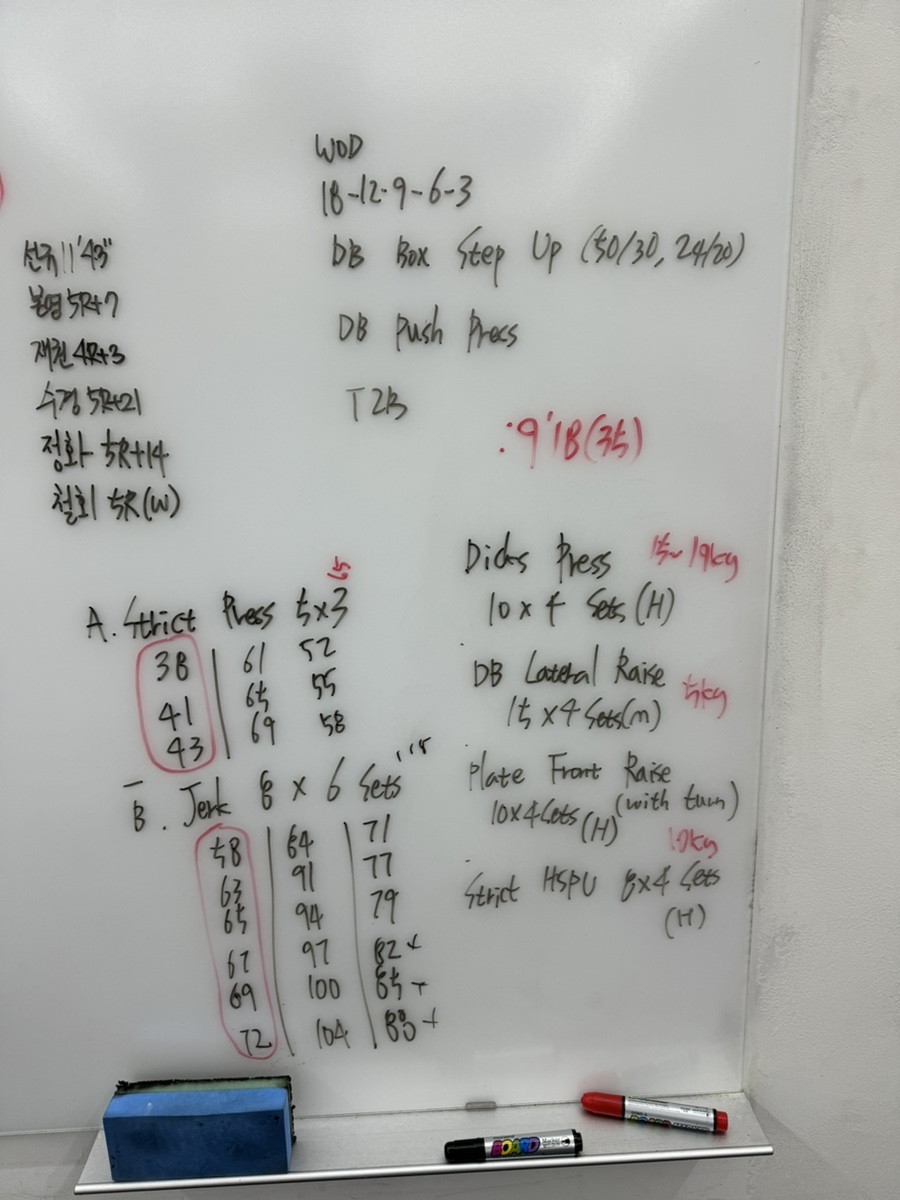 WOD
18-12-9-6-3
DB Box Step Up (50/30, 24/20)
DB Push Press
T2B
:9'18(35)
선규 11'43"
봉명 5R+7
재권 4R+3
수경 5R+21
정화 5R+14
철희 5R(W)
A. Strict Press 5x3
38 61 52
41 65 55
43 69 58
B. Jerk 8 x 6 Sets
58 84 71
63 91 77
65 94 79
67 97 82 x
69 100 85
72 104 88 x
Dicks Press 15~19kg
10 x 4 Sets (H)
DB Lateral Raise 5kg
15 x 4 Sets(m)
Plate Front Raise
(with turn)
10x4 Sets (H)
10kg
Strict HSPU 8x4 Sets
(H)
BOARD